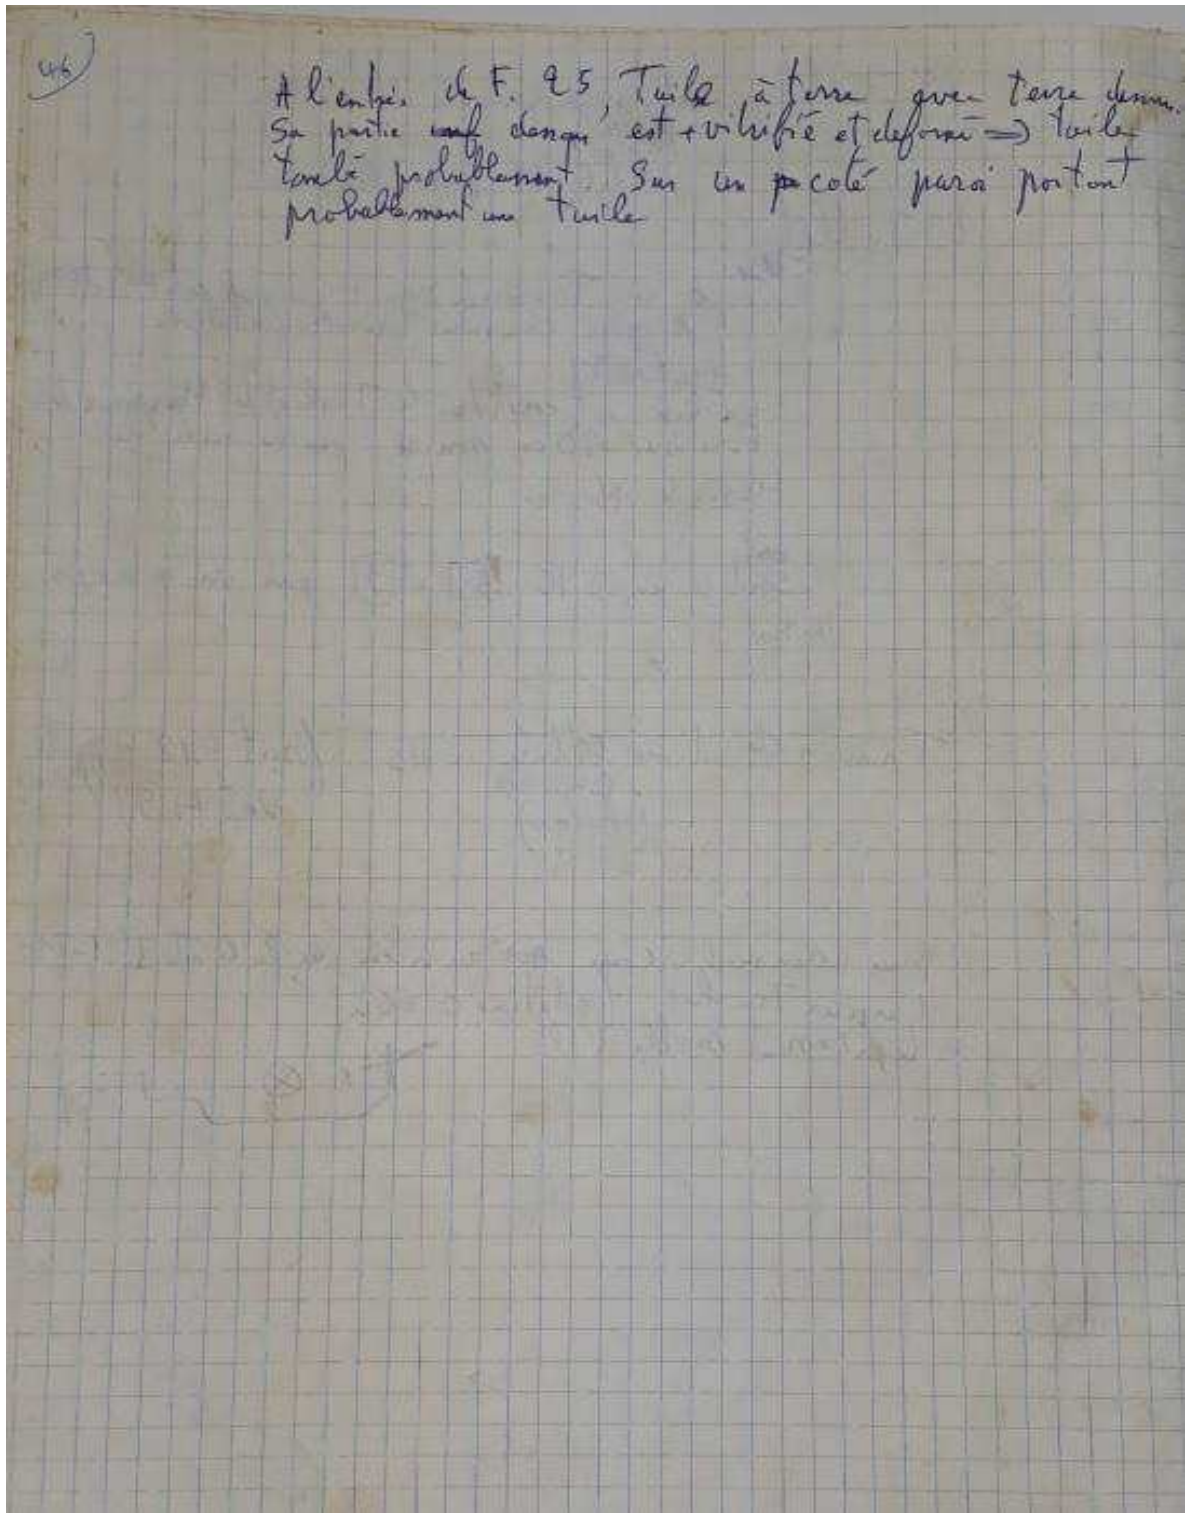 46)
A l'entrée de F. 25, Tuile à terre avec terre dessus.
Sa partie dessous est + vitrifié et deformé => tuile
tombé probablement. Sur un coté paroi portant
probablement une tuile